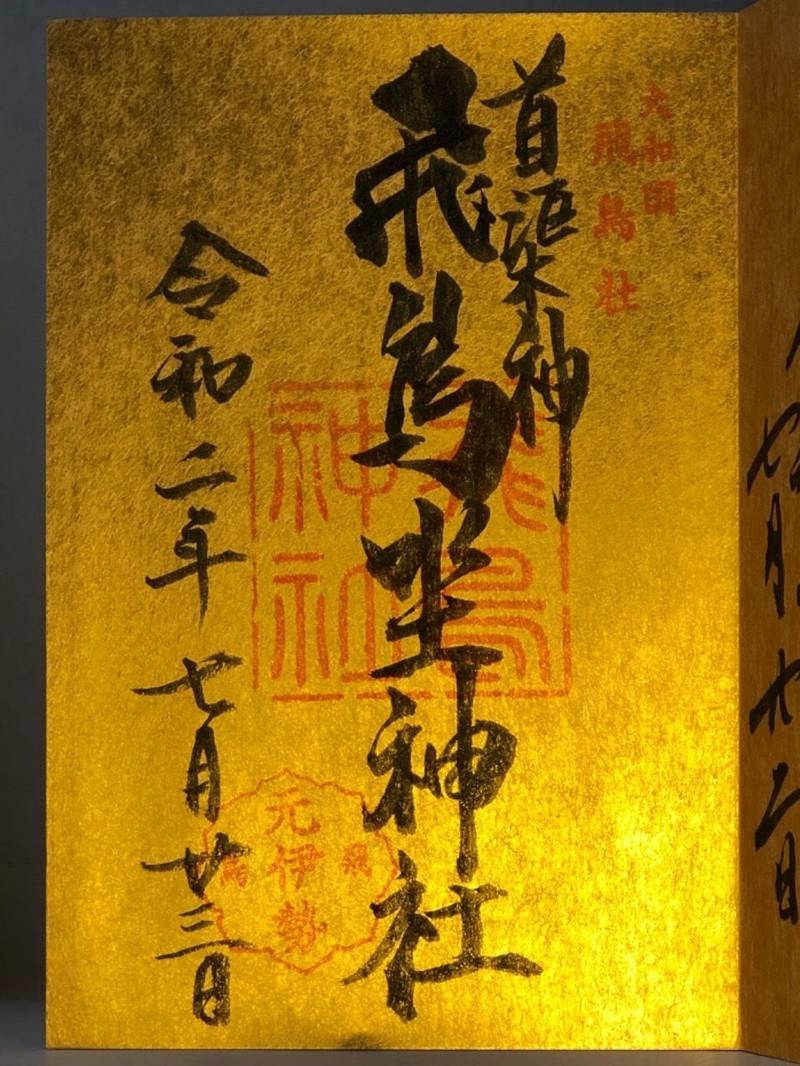 大和國
飛鳥社
首渠神
飛鳥坐神社
飛鳥
神社
飛鳥
元伊勢
令和二年七月廿三日